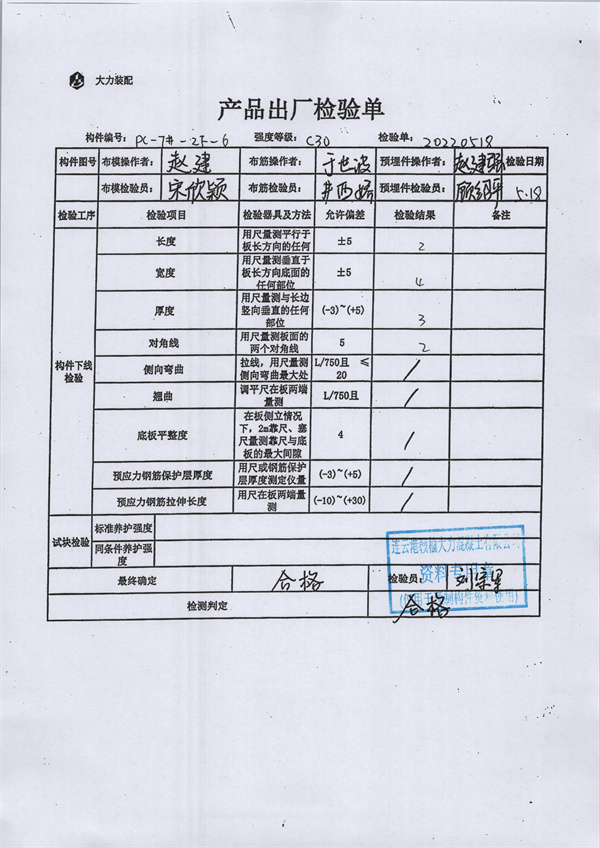 大力装配
产品出厂检验单
构件编号: PC-7#-2F-6 强度等级: C30 检验单: 20220518
构件图号 布模操作者: 赵建 布筋操作者: 于世波 预埋件操作者: 赵建强 检验日期
布模检验员: 宋欣颖 布筋检验员: 预埋件检验员: 5.18
检验工序 检验项目 检验器具及方法 允许偏差 检验结果 备注
构件下线检验
长度 用尺量测平行于板长方向的任何 ±5 2
宽度 用尺量测垂直于板长方向底面的任何部位 ±5 4
厚度 用尺量测与长边竖向垂直的任何部位 (-3)~(+5) 3
对角线 用尺量测板面的两个对角线 5 2
侧向弯曲 拉线,用尺量测侧向弯曲最大处 L/750且 ≤20 /
翘曲 调平尺在板两端量测 L/750且 /
底板平整度 在板侧立情况下,2m靠尺、塞尺量测靠尺与底板的最大间隙 4 /
预应力钢筋保护层厚度 用尺或钢筋保护层厚度测定仪量 (-3)~(+5) /
预应力钢筋拉伸长度 用尺在板两端量测 (-10)~(+30) /
试块检验 标准养护强度
同条件养护强度
连云港赣榆大力混凝土有限公司
最终确定 合格 检验员:
资料专用章
检测判定 合格